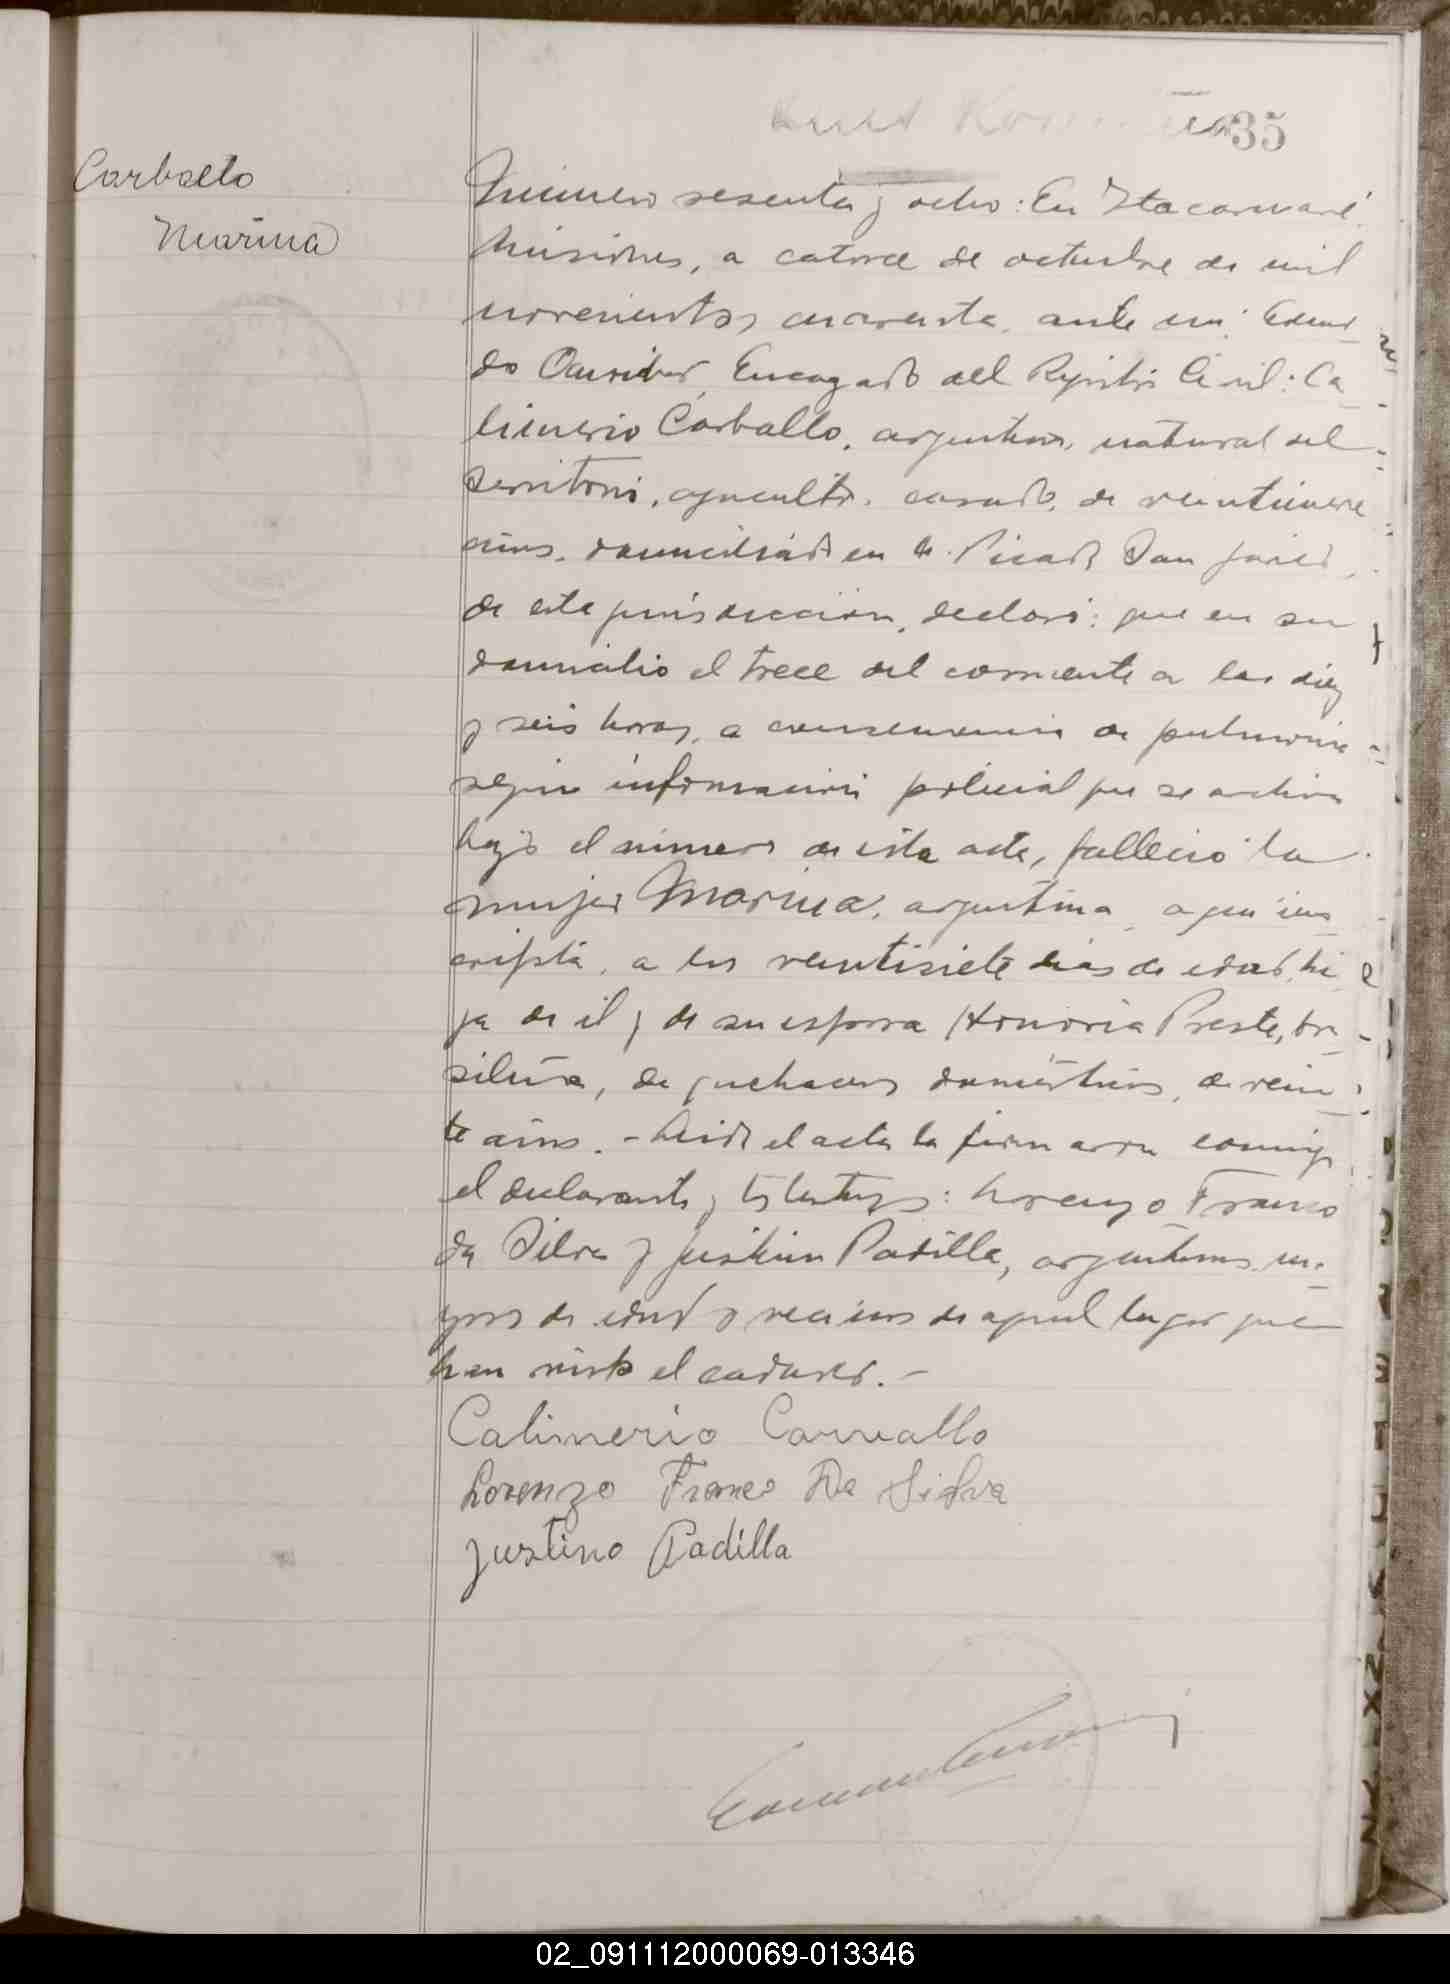 35
Carballo
Marina
Número sesenta y ocho: En Itacaruaré
Misiones, a catorce de octubre de mil
novecientos cuarenta, ante mí: Edmun
do Encargado del Registro Civil: Ca
limerio Carballo, argentino, natural del
territorio, agricultor, casado, de veintinueve
años, domiciliado en la Picada San Javier,
de esta jurisdicción, declaró: que en su
domicilio el trece del corriente a las diez
y seis horas, a consecuencia de pulmonía
según información policial que se archiva
bajo el número de esta acta, falleció la
mujer Marina, argentina, aquí ins
cripta, a los veintisiete días de edad, hi
ja de él y de su esposa Honoria Preste, bra
sileña, de quehaceres domésticos, de vein
te años.- Leída el acta la firmaron conmigo
el declarante y los testigos: Lorenzo Franco
da Silva y Justino Padilla, argentinos, ma
yores de edad y vecinos de aquel lugar que
han visto el cadáver.-
Calimerio Carvallo
Lorenzo Franco Da Silva
Justino Padilla
02_091112000069-013346